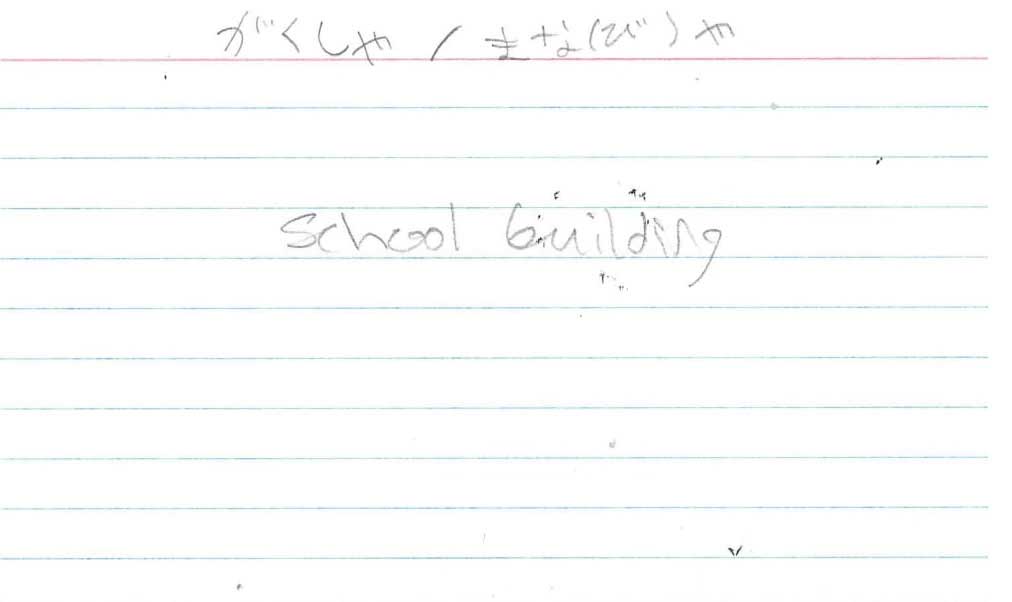 がくしゃ / まな(び)や
school building